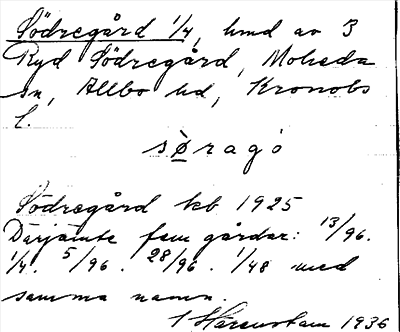 Södregård 1/4, hmd av 3
Ryd Södregård, Moheda
sn, Allbo hd, Kronobs
l.
sø̀ragó
Södregård kb 1925
Därjämte fem gårdar: 13/96.
1/4. 5/96. 28/96. 1/48 med
samma namn.
1936